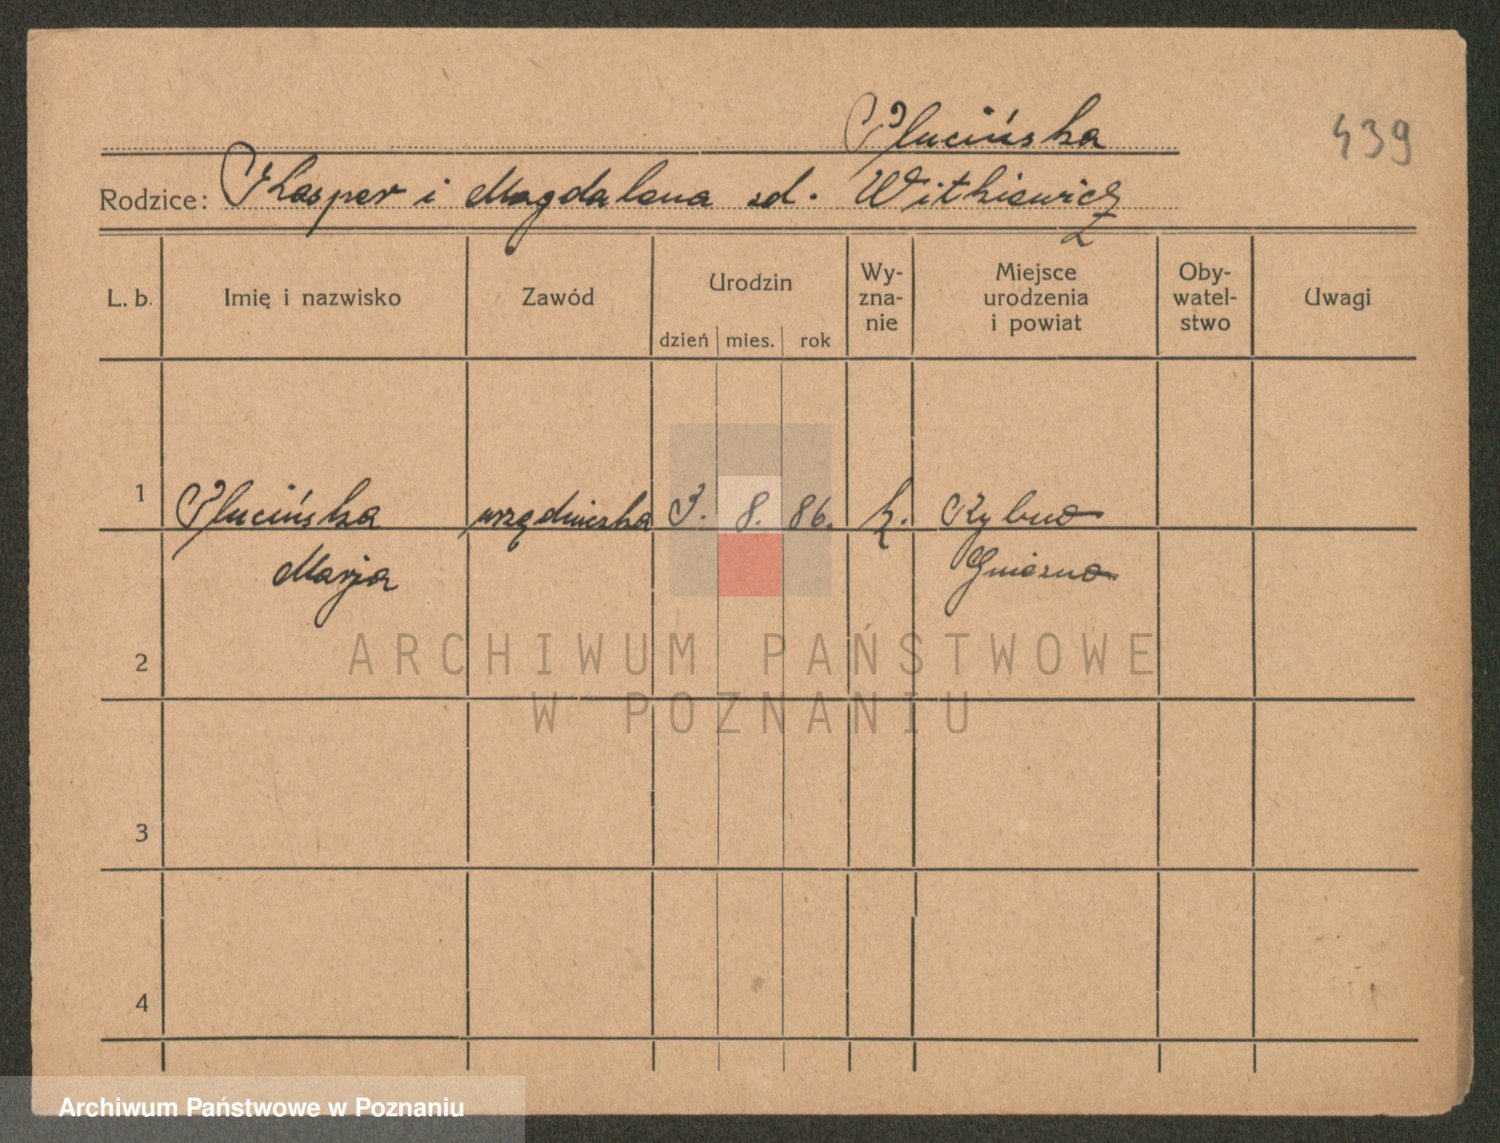 Plucińska
439
Rodzice: Kasper i Magdalena zd. Witkiewicz
L. b. Imię i nazwisko Zawód Urodzin dzień mies. rok Wy-zna-nie Miejsce urodzenia i powiat Oby-watel-stwo Uwagi
1 Plucińska urzędniczka 3. 8. 86. k. Rybno
Marja Gniezno
2
ARCHIWUM PAŃSTWOWE
W POZNANIU
3
4
Archiwum Państwowe w Poznaniu